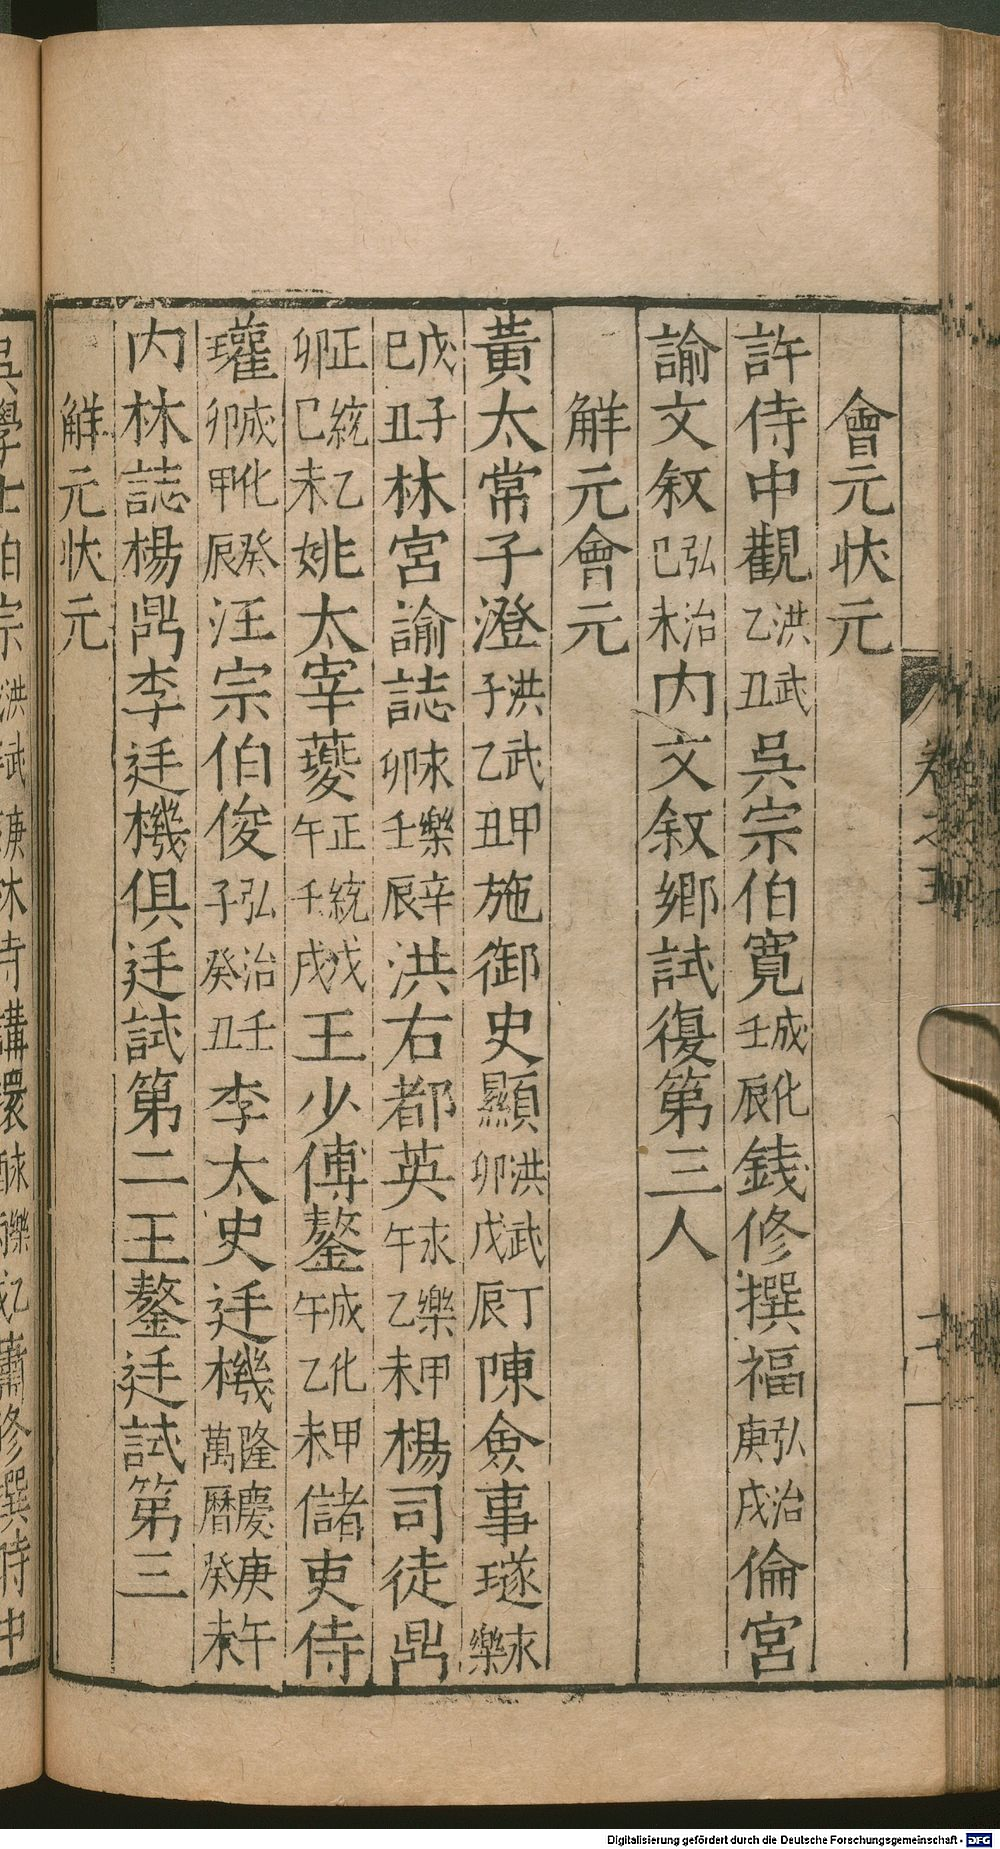 會元狀元
許侍中觀洪武乙丑吳宗伯寬成化壬辰錢修撰福弘治庚戌倫宮
諭文叙弘治己未内文叙鄉試復第三人
解元會元
黃太常子澄洪武甲子乙丑施御史顯洪武丁卯戊辰陳僉事璲永樂
戊子己丑林宮諭誌永樂辛卯壬辰洪右都英永樂甲午乙未楊司徒鼎
正統乙卯己未姚太宰夔正統戊午壬戌王少傅鏊成化甲午乙未儲吏侍
瓘成化癸卯甲辰汪宗伯俊弘治壬子癸丑李太史廷機隆慶庚午萬曆癸未
内林誌楊鼎李廷機俱廷試第二王鏊廷試第三
解元狀元
吳學士伯宗洪武庚
卷之五
Digitalisierung gefördert durch die Deutsche Forschungsgemeinschaft - DFG